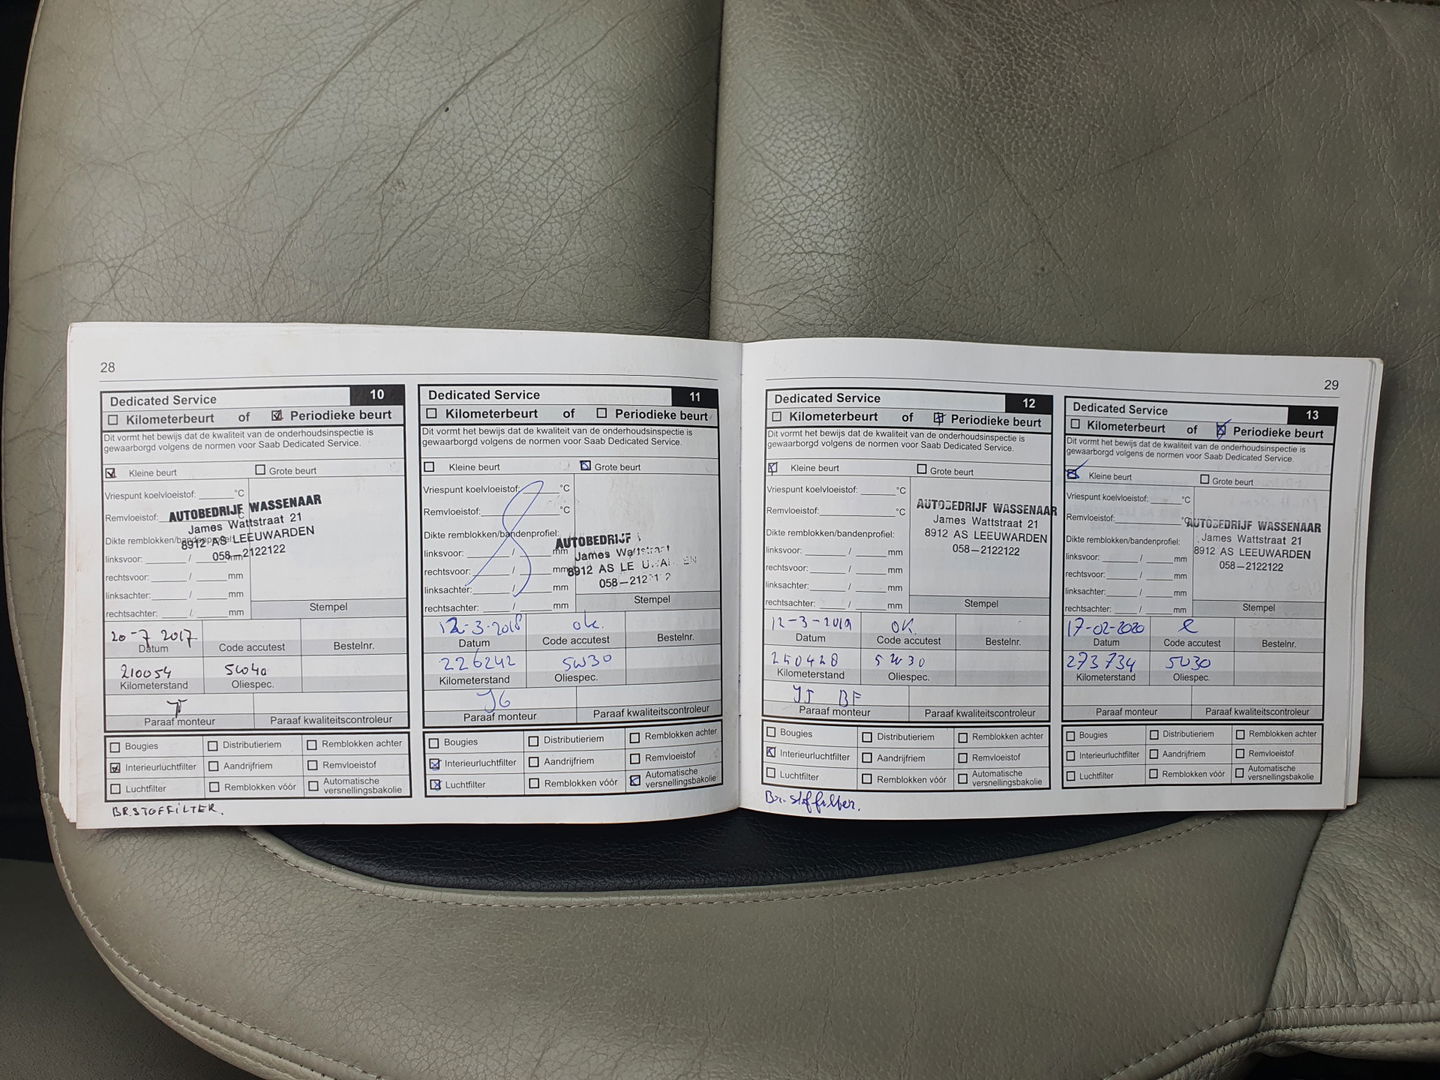 28
Dedicated Service 10
Kilometerbeurt of Periodieke beurt
Dit vormt het bewijs dat de kwaliteit van de onderhoudsinspectie is
gewaarborgd volgens de normen voor Saab Dedicated Service.
Kleine beurt Grote beurt
Vriespunt koelvloeistof: °C
Remvloeistof: °C
AUTOBEDRIJF WASSENAAR
James Wattstraat 21
8912 AS LEEUWARDEN
058-2122122
Dikte remblokken/bandenprofiel:
linksvoor: / mm
rechtsvoor: / mm
linksachter: / mm
rechtsachter: / mm
Stempel
20-7 2017
Datum Code accutest Bestelnr.
210054 5W40
Kilometerstand Oliespec.
Paraaf monteur Paraaf kwaliteitscontroleur
Bougies Distributieriem Remblokken achter
Interieurluchtfilter Aandrijfriem Remvloeistof
Luchtfilter Remblokken vóór Automatische versnellingsbakolie
BR.STOFFILTER.
Dedicated Service 11
Kilometerbeurt of Periodieke beurt
Dit vormt het bewijs dat de kwaliteit van de onderhoudsinspectie is
gewaarborgd volgens de normen voor Saab Dedicated Service.
Kleine beurt Grote beurt
Vriespunt koelvloeistof: °C
Remvloeistof: °C
Dikte remblokken/bandenprofiel:
AUTOBEDRIJF
James Wattstraat
8912 AS
linksvoor: / mm
rechtsvoor: / mm
linksachter: / mm
rechtsachter: / mm
Stempel
12-3-2018 ok.
Datum Code accutest Bestelnr.
226242 5W30
Kilometerstand Oliespec.
Paraaf monteur Paraaf kwaliteitscontroleur
Bougies Distributieriem Remblokken achter
Interieurluchtfilter Aandrijfriem Remvloeistof
Luchtfilter Remblokken vóór Automatische versnellingsbakolie
29
Dedicated Service 12
Kilometerbeurt of Periodieke beurt
Dit vormt het bewijs dat de kwaliteit van de onderhoudsinspectie is
gewaarborgd volgens de normen voor Saab Dedicated Service.
Kleine beurt Grote beurt
Vriespunt koelvloeistof: °C
Remvloeistof: °C
AUTOBEDRIJF WASSENAAR
James Wattstraat 21
8912 AS LEEUWARDEN
058-2122122
Dikte remblokken/bandenprofiel:
linksvoor: / mm
rechtsvoor: / mm
linksachter: / mm
rechtsachter: / mm
Stempel
12-3-2019 OK.
Datum Code accutest Bestelnr.
250428 5W30
Kilometerstand Oliespec.
Paraaf monteur Paraaf kwaliteitscontroleur
Bougies Distributieriem Remblokken achter
Interieurluchtfilter Aandrijfriem Remvloeistof
Luchtfilter Remblokken vóór Automatische versnellingsbakolie
Br.stoffilter.
Dedicated Service 13
Kilometerbeurt of Periodieke beurt
Dit vormt het bewijs dat de kwaliteit van de onderhoudsinspectie is
gewaarborgd volgens de normen voor Saab Dedicated Service.
Kleine beurt Grote beurt
Vriespunt koelvloeistof: °C
Remvloeistof: °C
AUTOBEDRIJF WASSENAAR
James Wattstraat 21
8912 AS LEEUWARDEN
058-2122122
Dikte remblokken/bandenprofiel:
linksvoor: / mm
rechtsvoor: / mm
linksachter: / mm
rechtsachter: / mm
Stempel
17-02-2020
Datum Code accutest Bestelnr.
273734 5W30
Kilometerstand Oliespec.
Paraaf monteur Paraaf kwaliteitscontroleur
Bougies Distributieriem Remblokken achter
Interieurluchtfilter Aandrijfriem Remvloeistof
Luchtfilter Remblokken vóór Automatische versnellingsbakolie